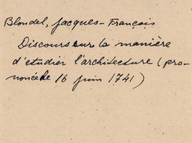 Blondel, Jacques-François
Discours sur la manière
d'étudier l'architecture (pro-
noncé le 16 juin 1741)